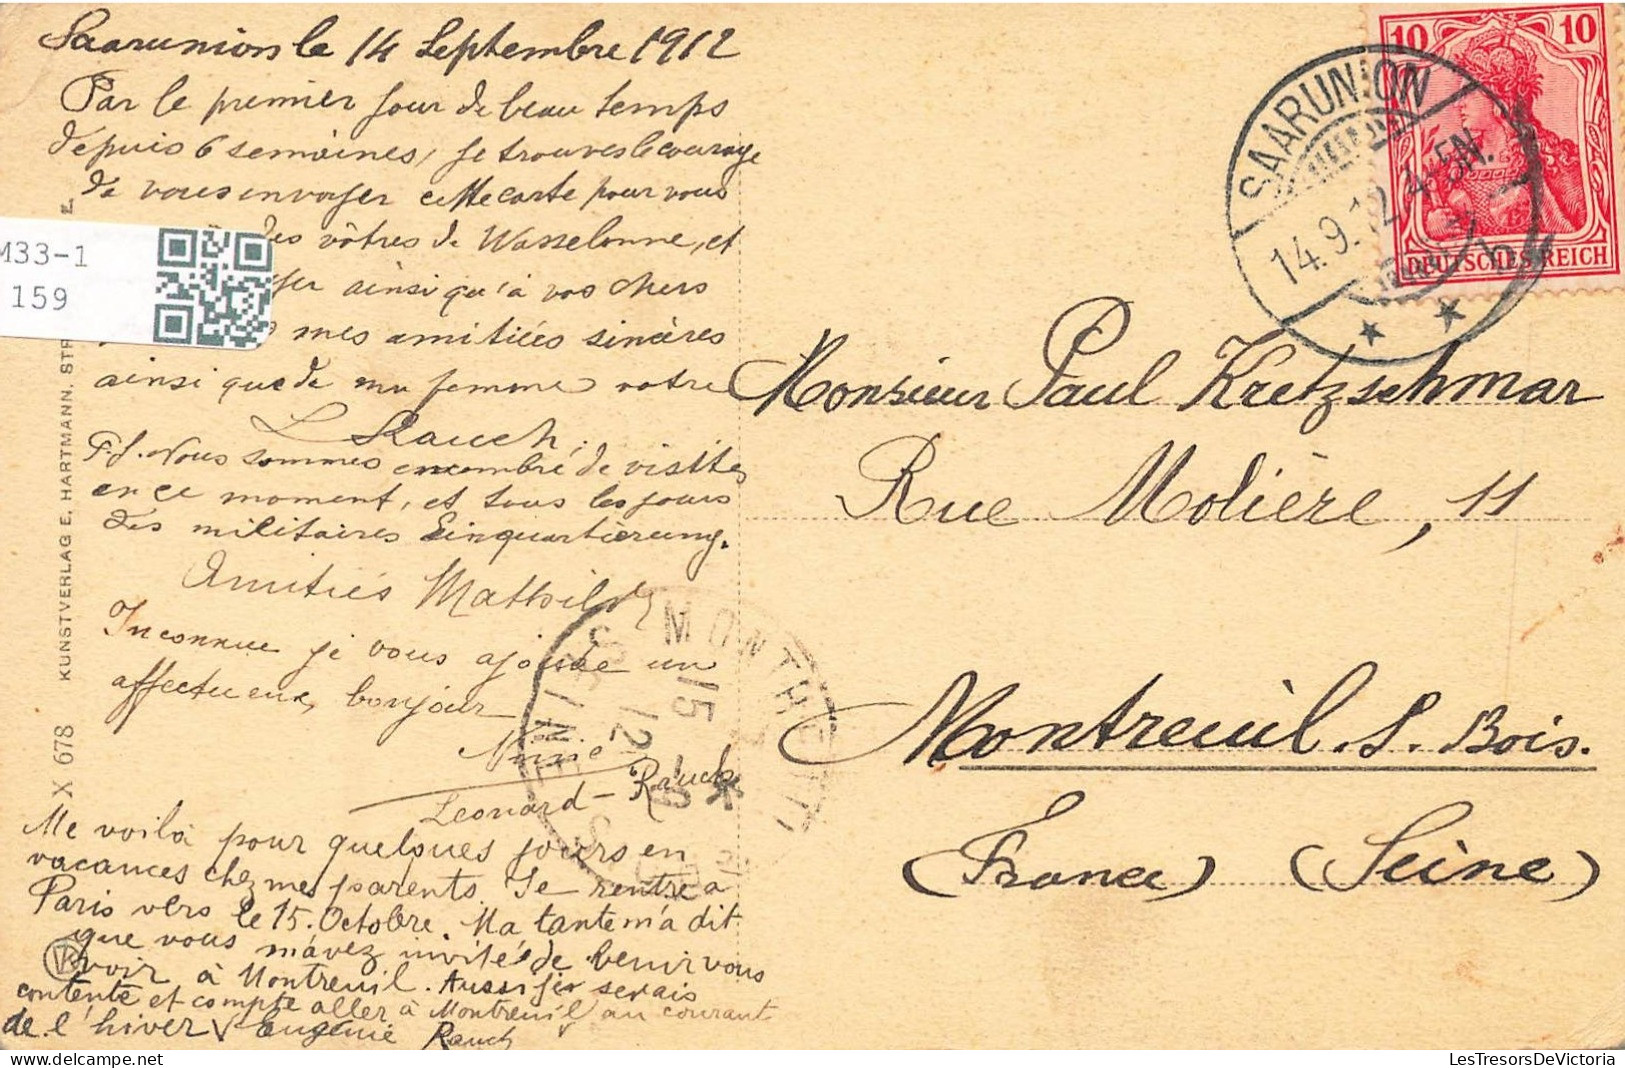 Saarunion le 14 Septembre 1912
Par le premier jour de beau temps
depuis 6 semaines, je trouve le courage
de vous envoyer cette carte pour vous
des vôtres de Wasselonne, et
ainsi qu'à vos chers
mes amitiés sincères
ainsi que de ma femme votre
L Rauch.
P.S. Nous sommes encombré de visites
en ce moment, et tous les jours
des militaires Einquartierung.
Amitiés Mathilde
Inconnue je vous ajoute un
affectueux bonjour
Leonard-Rauch
Me voilà pour quelques jours en
vacances chez mes parents. Je rentre a
Paris vers le 15. Octobre. Ma tante m'a dit
que vous m'avez invitée de venir vous
voir à Montreuil. Aussi je serais
contente et compte aller à Montreuil au courant
de l'hiver Eugénie Rauch
M33-1
159
X 678 KUNSTVERLAG E. HARTMANN, STR
10 10
DEUTSCHES REICH
SAARUNION
14.9.12.4-5N.
MONTREUIL
15
12
SEINE
Monsieur Paul Kretzschmar
Rue Molière, 11
Montreuil s. Bois.
(France) (Seine)
LesTresorsDeVictoria